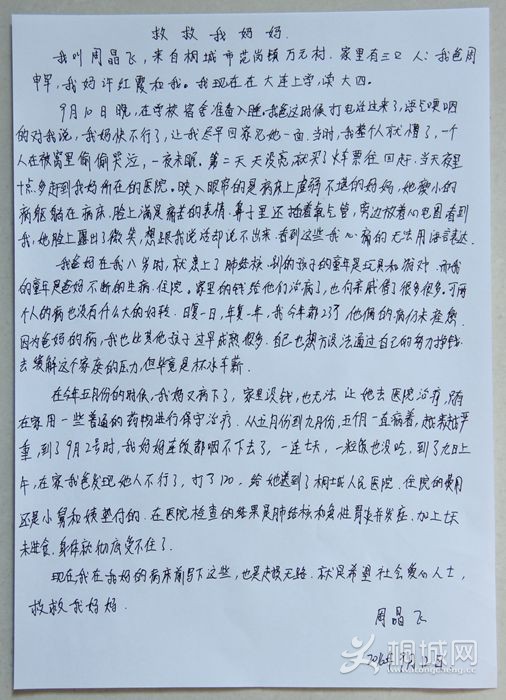 救救我妈妈.
我叫周晶飞，来自桐城市范岗镇万元村.家里有三口人：我爸周
申军，我妈许红霞和我。我现在在大连上学，读大四。
9月10日晚，在学校宿舍准备入睡。我爸这时候打电话过来了，语气哽咽
的对我说，我妈快不行了，让我尽早回家见她一面.当时，我整个人就懵了，一个
人在被窝里偷偷哭泣，一夜未眠。第二天天没亮就买了火车票往回赶.当天夜里
十点多赶到我妈所在的医院。映入眼帘的是病床上虚弱不堪的妈妈，她瘦小的
病躯躺在病床，脸上满是痛苦的表情.鼻子里还插着氧气管，旁边放着心电图看到
我，她脸上露出了微笑，想跟我说话却说不出来.看到这些我心痛的无法用语言表达.
我爸妈在我八岁时，就患上了肺结核.别的孩子的童年是玩具和有对.而我
的童年是爸妈不断的生病.住院。家里的钱给他们治病了，也向亲戚借了很多很多.可两
个人的病也没有什么大的好转.日复一日，年复一年，我今年都23了他俩的病仍未痊愈.
因为爸妈的病，我也比其他孩子过早成熟很多.自己也想方设法通过自己的努力挣钱
去缓解这个家庭的压力，但毕竟是杯水车薪.
在今年五月份的时候，我妈又病下了，家里没钱，也无法让她去医院治疗，只有
在家用一些普通的药物进行保守治疗.从五月份到九月份，五个月一直病着，越来越严
重，到了9月2号时，我妈妈连饭都咽不下去了，一连七天，一粒饭也没吃，到了九日上
午，在家我爸发现她人不行了，打了120，给她送到了桐城人民医院.住院的费用
还是小舅和姨垫付的.在医院检查的结果是肺结核和急性胃炎并发症.加上七天
未进食.身体就彻底受不住了.
现在，我在我妈的病床前写下这些，也是走投无路.就是希望社会爱心人士，
救救我妈妈.
周晶飞
桐城网
tongcheng.cc